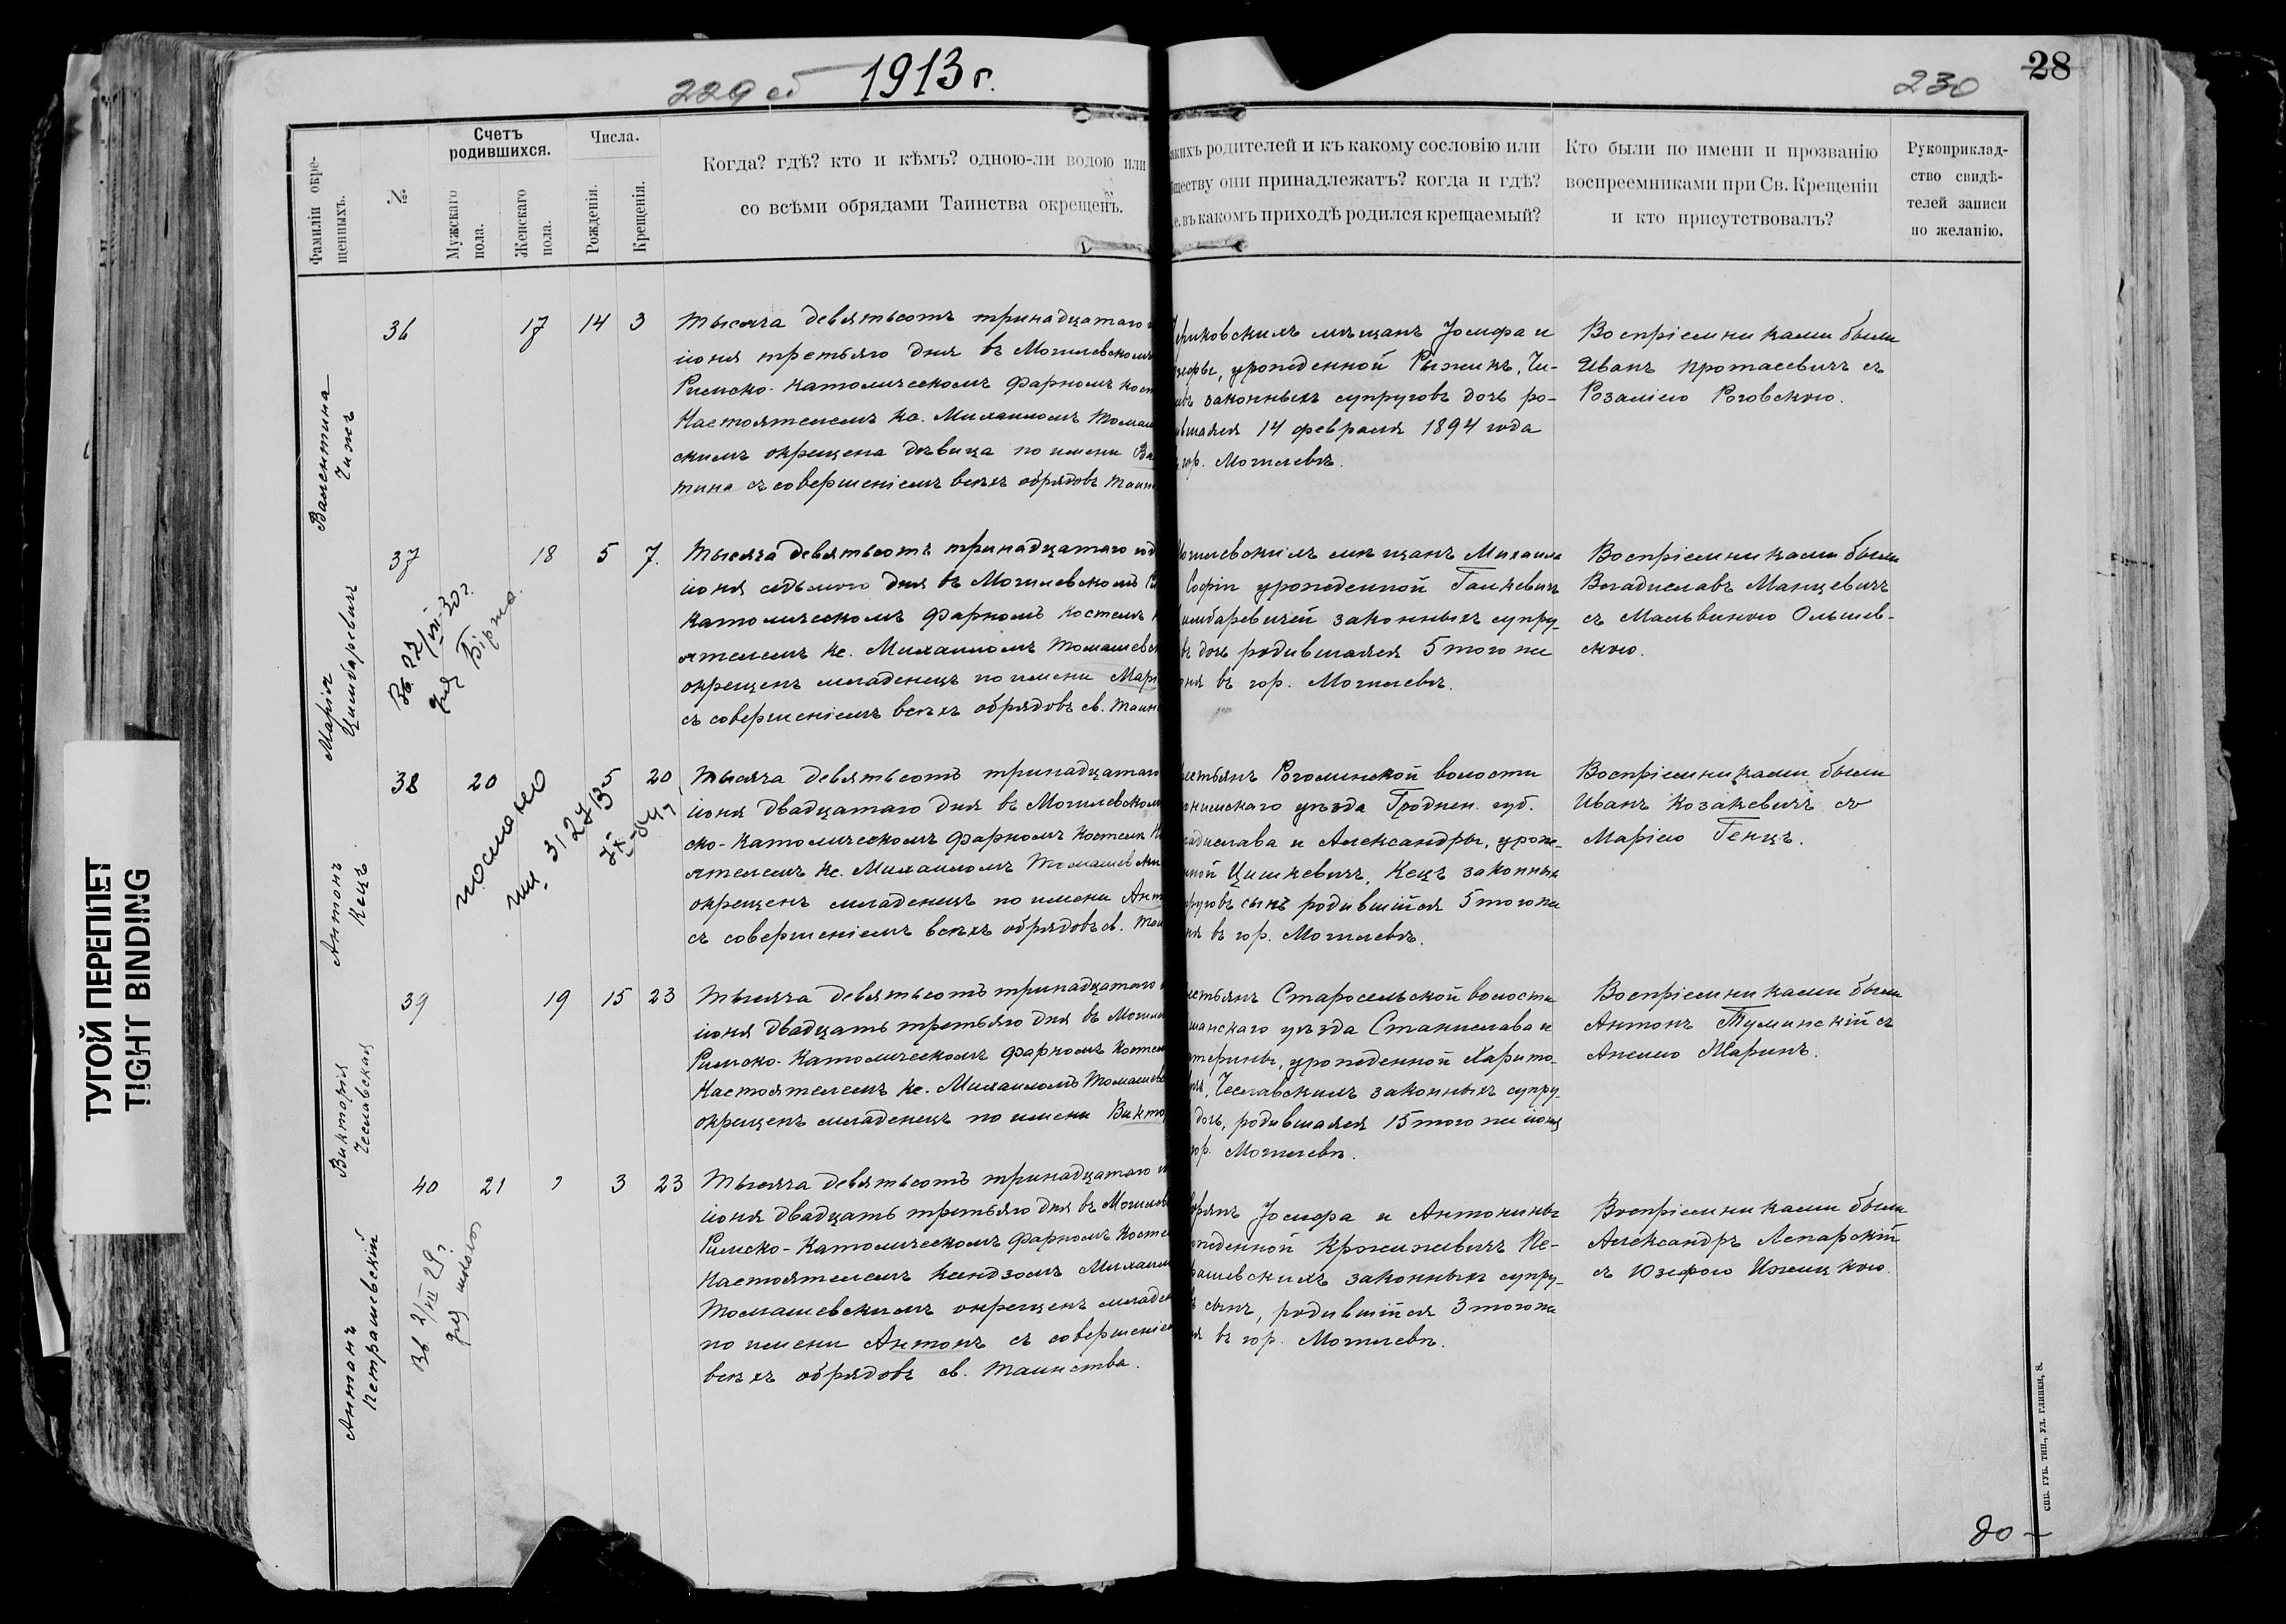 229 об 1913 г.
230
28
ТУГОЙ ПЕРЕПЛЕТ
TIGHT BINDING
Фамиліи окре-
щенныхъ.
№
Счетъ
родившихся.
Мужскаго
пола.
Женскаго
пола.
Числа.
Рожденія.
Крещенія.
Когда? гдѣ? кто и кѣмъ? одною-ли водою или
со всѣми обрядами Таинства окрещенъ.
акихъ родителей и къ какому сословію или
бществу они принадлежатъ? когда и гдѣ?
е. въ какомъ приходѣ родился крещаемый?
Кто были по имени и прозванію
воспреемниками при Св. Крещеніи
и кто присутствовалъ?
Рукоприклад-
ство свидѣ-
телей записи
по желанію.
Валентина
Чижъ
36 17 14 3
Тысяча девятьсотъ тринадцатаго
іюня третьяго дня въ Могилевскомъ
Римско-Католическомъ фарномъ кост
Настоятелемъ кс. Михаиломъ Томаш
скимъ окрещена дѣвица по имени Ва
тина съ совершеніемъ всѣхъ обрядовъ Таин
риковскихъ мѣщанъ Іосифа и
зефы, урожденной Рыжикъ, Чи-
овъ законныхъ супруговъ дочь ро-
вшаяся 14 февраля 1894 года
гор. Могилевѣ.
Воспріемниками были
Иванъ Протасевичъ съ
Розаліею Роговскою.
Марія
Цимбаревичъ
37 18 5 7.
Вб. 22/VII-30 г.
для Біржа.
Тысяча девятьсотъ тринадцатаго год
іюня седьмого дня въ Могилевскомъ Ри
Католическомъ фарномъ костелѣ Н
ятелемъ кс. Михаиломъ Томашевск
окрещенъ младенецъ по имени Марі
съ совершеніемъ всѣхъ обрядовъ св. Таин
огилевскихъ мѣщанъ Михаила
Софіи урожденной Галкевичъ
имбаревичей законныхъ супру-
въ дочь родившаяся 5 того же
юня въ гор. Могилевѣ.
Воспріемниками были
Владиславъ Манцевичъ
съ Мальвиною Ольшев-
скою.
Антонъ
Кецъ
38 20 5 20
послано
Тысяча девятьсотъ тринадцатаго
іюня двадцатаго дня въ Могилевском
ско-Католическомъ фарномъ костелѣ На
ятелемъ кс. Михаиломъ Томашевски
окрещенъ младенецъ по имени Ант
съ совершеніемъ всѣхъ обрядовъ св. Таи
естьянъ Роготинской волости
онимскаго уѣзда Гроднен. губ.
адислава и Александры, урож-
нной Цишкевичъ, Кецъ законны
пруговъ сынъ родившійся 5 того же
ня въ гор. Могилевѣ.
Воспріемниками были
Иванъ Козакевичъ съ
Маріею Генцъ.
Викторія
Чеславская
39 19 15 23
Тысяча девятьсотъ тринадцатаго
іюня двадцать третьяго дня въ Могиле
Римско-Католическомъ фарномъ костел
Настоятелемъ кс. Михаиломъ Томашевс
окрещенъ младенецъ по имени Викто
естьянъ Старосельской волости
шанскаго уѣзда Станислава и
атерины, урожденной Харито-
Чеславскихъ законныхъ супру-
дочь, родившаяся 15 того же іюня
гор. Могилевѣ.
Воспріемниками были
Антонъ Туминскій съ
Анелею Жаринъ.
Антонъ
Петрашевскій
40 21 3 23
Вб. 2/VII 29 г.
для школы
Тысяча девятьсотъ тринадцатаго
іюня двадцать третьяго дня въ Могилев
Римско-Католическомъ фарномъ косте
Настоятелемъ ксендзомъ Михаил
Томашевскимъ окрещенъ младен
по имени Антонъ съ совершеніем
всѣхъ обрядовъ св. Таинства.
орянъ Іосифа и Антонины
ожденной Кржижевичъ Пе-
рашевскихъ законныхъ супру-
сынъ, родившійся 3 того же
ня въ гор. Могилевѣ.
Воспріемниками были
Александръ Лепарскій
съ Юзефою Ижицкою.
СПБ. ГУБ. ТИП., УЛ. ГЛИНКИ, 8.
80